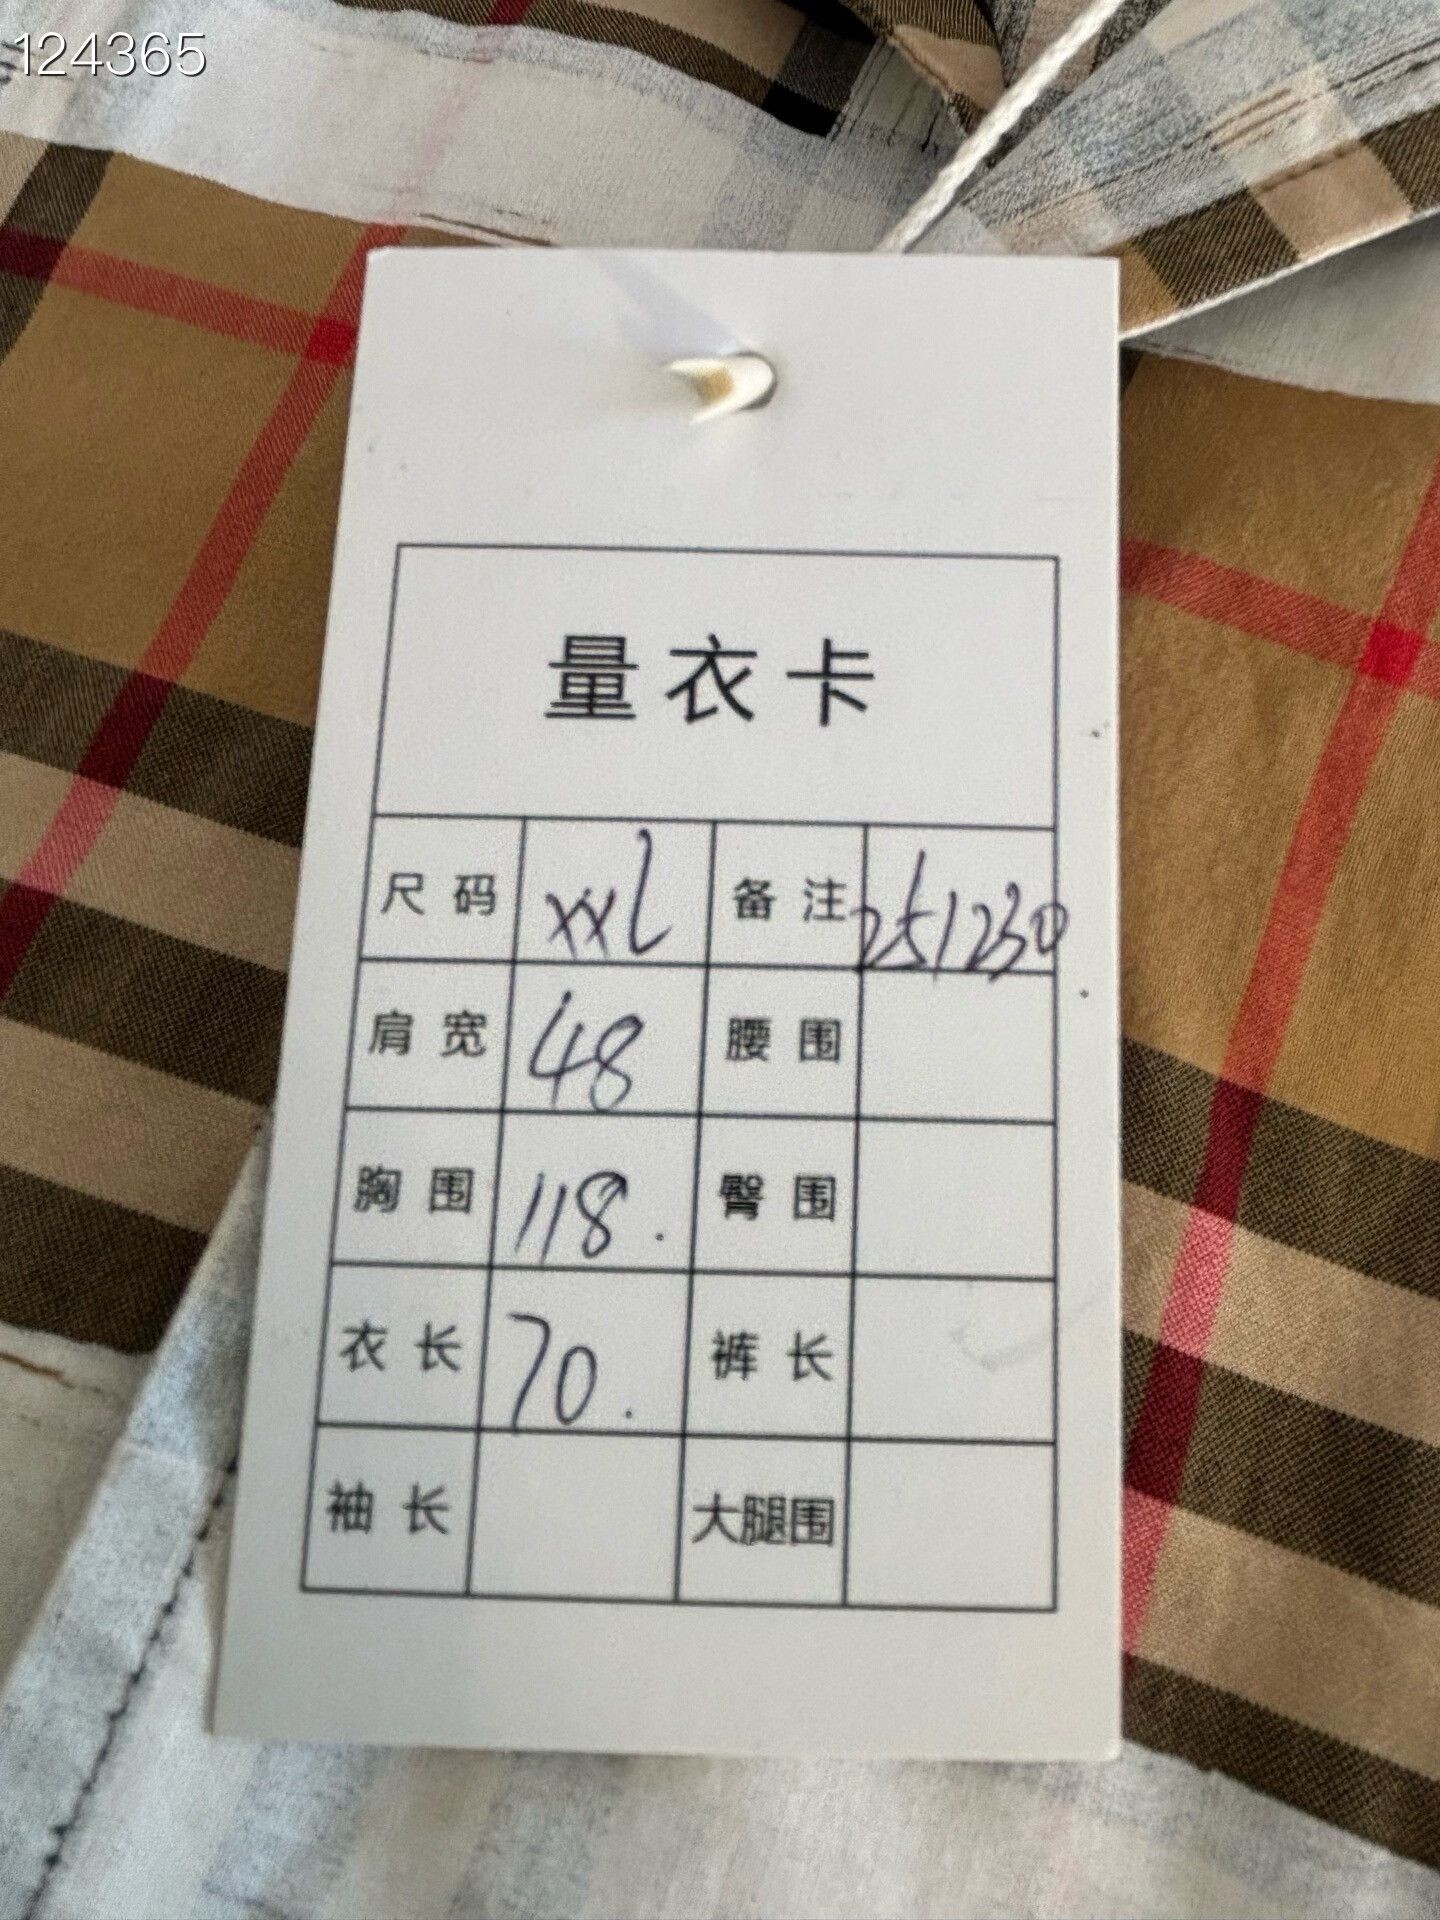 124365
量衣卡
尺码 XXL 备注 251230
肩宽 48 腰围
胸围 118. 臀围
衣长 70. 裤长
袖长 大腿围